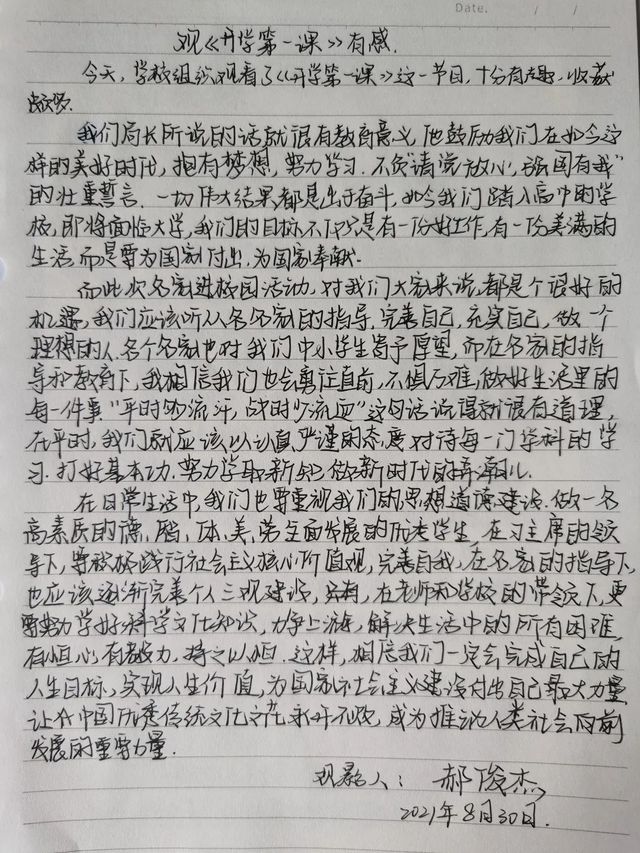 Date. / /
观《开学第一课》有感.
今天,学校组织观看了《开学第一课》这一节目,十分有趣,收获
颇多.
我们局长所说的话就很有教育意义,他鼓励我们在如今这
样的美好时代,拥有梦想,努力学习.不负“请党放心,强国有我”
的壮重誓言.一切伟大结果都是出于奋斗,如今我们踏入高中的学
校,即将面临大学,我们的目标不仅只是有一份好工作,有一份美满的
生活,而是要为国家付出,为国家奉献.
而此次名家进校园活动,对我们大家来说,都是个很好的
机遇,我们应该听从各名家的指导,完善自己,充实自己,做一个
理想的人.各个名家也对我们中小学生寄予厚望,而在名家的指
导和教育下,我相信我们也会勇往直前,不惧万难,做好生活里的
每一件事.“平时多流汗,战时少流血”这句话说得就很有道理,
在平时,我们就应该以认真严谨的态度对待每一门学科的学
习.打好基本功.努力学取新知.做新时代的弄潮儿.
在日常生活中,我们也要重视我们的思想道德建设.做一名
高素质的德,智,体,美,劳全面发展的优秀学生,在习主席的领
导下,要积极践行社会主义核心价值观,完善自我,在名家的指导下,
也应该逐渐完善个人三观建设,只有,在老师和学校的带领下,更
要努力学好科学文化知识,力争上游,解决生活中的所有困难,
有恒心,有毅力,持之以恒.这样,相信我们一定会完成自己的
人生目标,实现人生价值,为国家社会主义建设付出自己最大力量,
让中国优秀传统文化文化永开不败,成为推动人类社会向前
发展的重要力量.
观影人:郝俊杰
2021年8月30日.